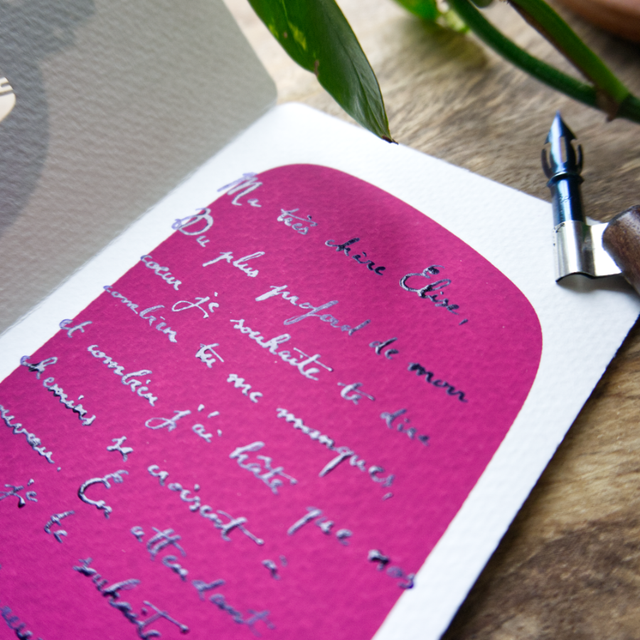 Ma très chère Élise,
Du plus profond de mon
cœur je souhaite te dire
combien tu me manques,
et combien j'ai hâte que nos
chemins se croisent à
nouveau. En attendant
je te souhaite